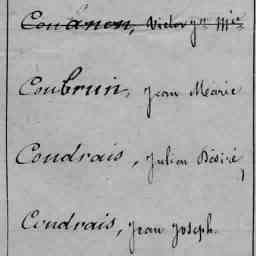 Couanon, Victor yn Mie
Coubrun, Jean Marie
Coudrais, Julien Désiré,
Coudrais, Jean Joseph.